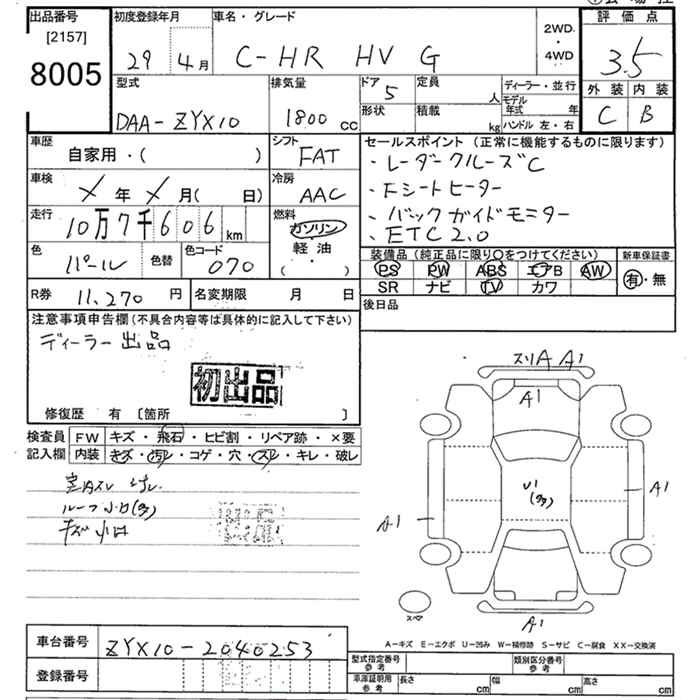 出品番号 初度登録年月 車名・グレード 評価点
[2157]
8005
29 4月 C-HR HV G 2WD・4WD 3.5
外装 内装
C B
型式 排気量 ドア 定員 ディーラー・並行
DAA-ZYX10 1800 cc 5 人 モデル年式 年
形状 積載 kg ハンドル 左・右
車歴 シフト セールスポイント (正常に機能するものに限ります)
自家用・( ) FAT
・レーダークルーズC
車検 冷房
×年×月( 日) AAC
・Fシートヒーター
走行 燃料
10万7千606km ガソリン・軽油
( )
・バックガイドモニター
・ETC2.0
色 色替 色コード
パール 070
装備品 (純正品に限り○をつけてください) 新車保証書
PS PW ABS エアB AW 有・無
SR ナビ TV カワ
R券 11,270 円 名変期限 月 日
後日品
注意事項申告欄(不具合内容等は具体的に記入して下さい)
ディーラー出品
初出品
修復歴 有 [箇所 ]
検査員 FW キズ・飛石・ヒビ割・リペア跡・×要
記入欄 内装 キズ・汚レ・コゲ・穴・スレ・キレ・破レ
ルーフ小口(多)
キズ小口
スリA A1
A1
U1
(多)
A1
A1
A1
スペア
A-キズ E-エクボ U-凹み W-補修跡 S-サビ C-腐食 XX-交換済
車台番号 ZYX10-2040253
登録番号
型式指定番号 参考 類別区分番号 参考
車庫証明用 参考 長さ cm 幅 cm 高さ cm